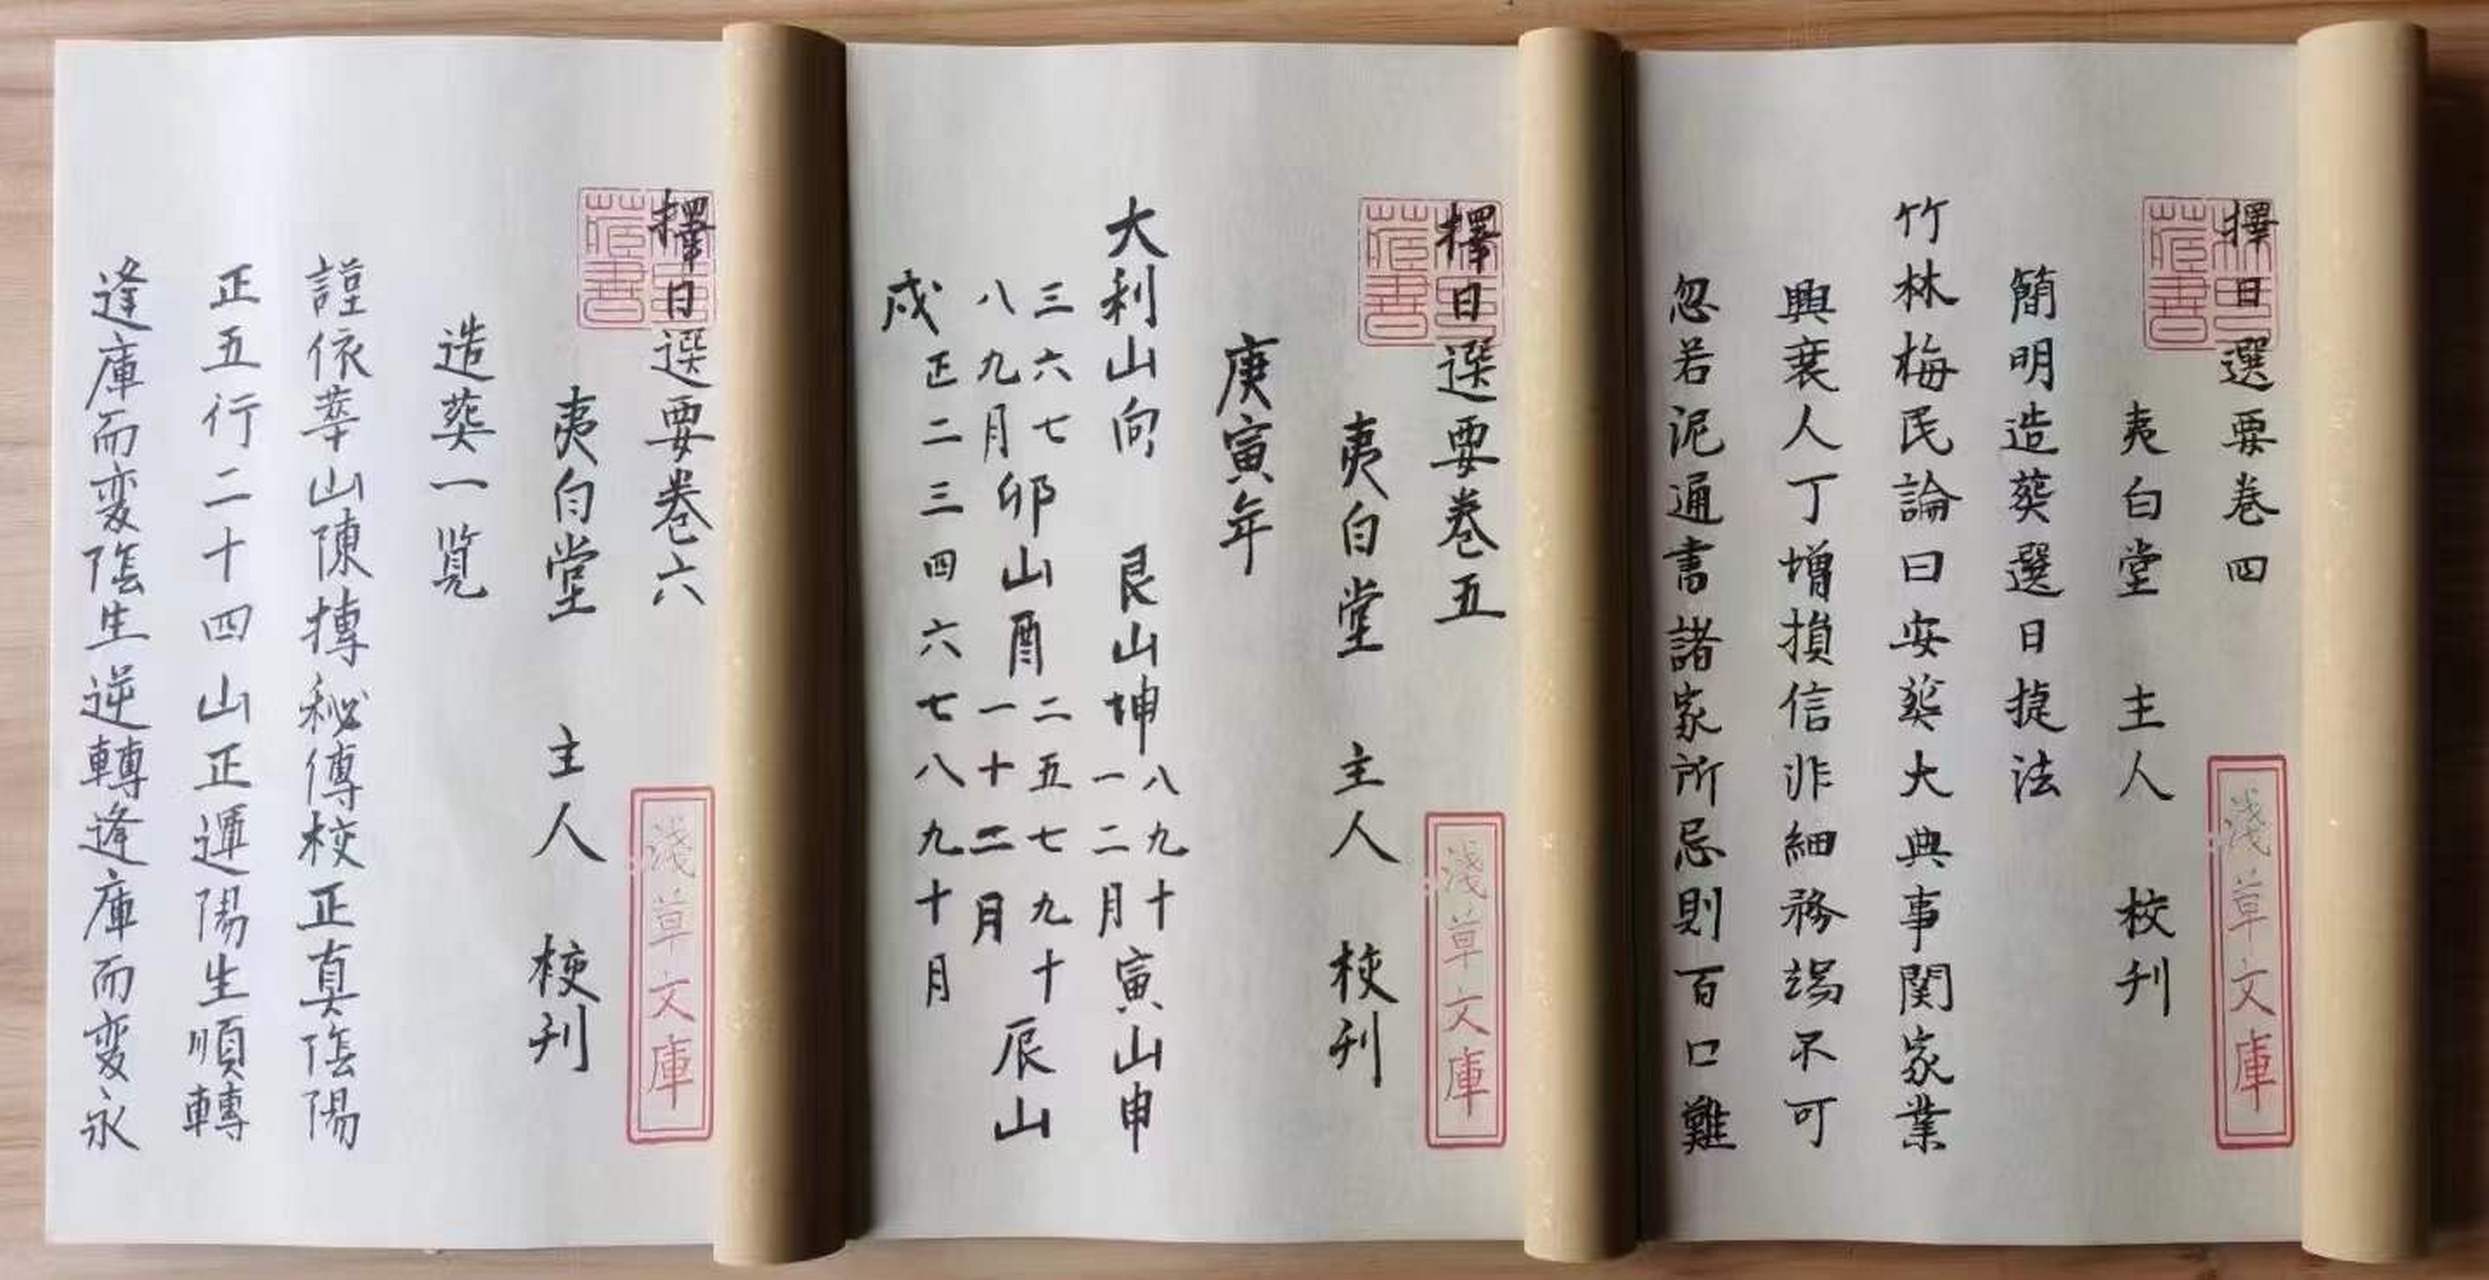 擇日選要卷四
夷白堂 主人 校刋
簡明造葬選日捷法
竹林梅民論曰安葬大典事関家業
興衰人丁增損信非細務竭不可
忽若泥通書諸家所忌則百口難
淺草文庫
擇日選要卷五
夷白堂 主人 校刋
庚寅年
大利山向 艮山坤 八九十 一二月 寅山申
三六七 八九月 卯山酉 二五七九十 一十二月 辰山
戍 正二三四六七八九十月
淺草文庫
擇日選要卷六
夷白堂 主人 校刋
造葬一覧
謹依華山陳摶秘傳校正真陰陽
正五行二十四山正運陽生順轉
逢庫而変陰生逆轉逢庫而変永
淺草文庫